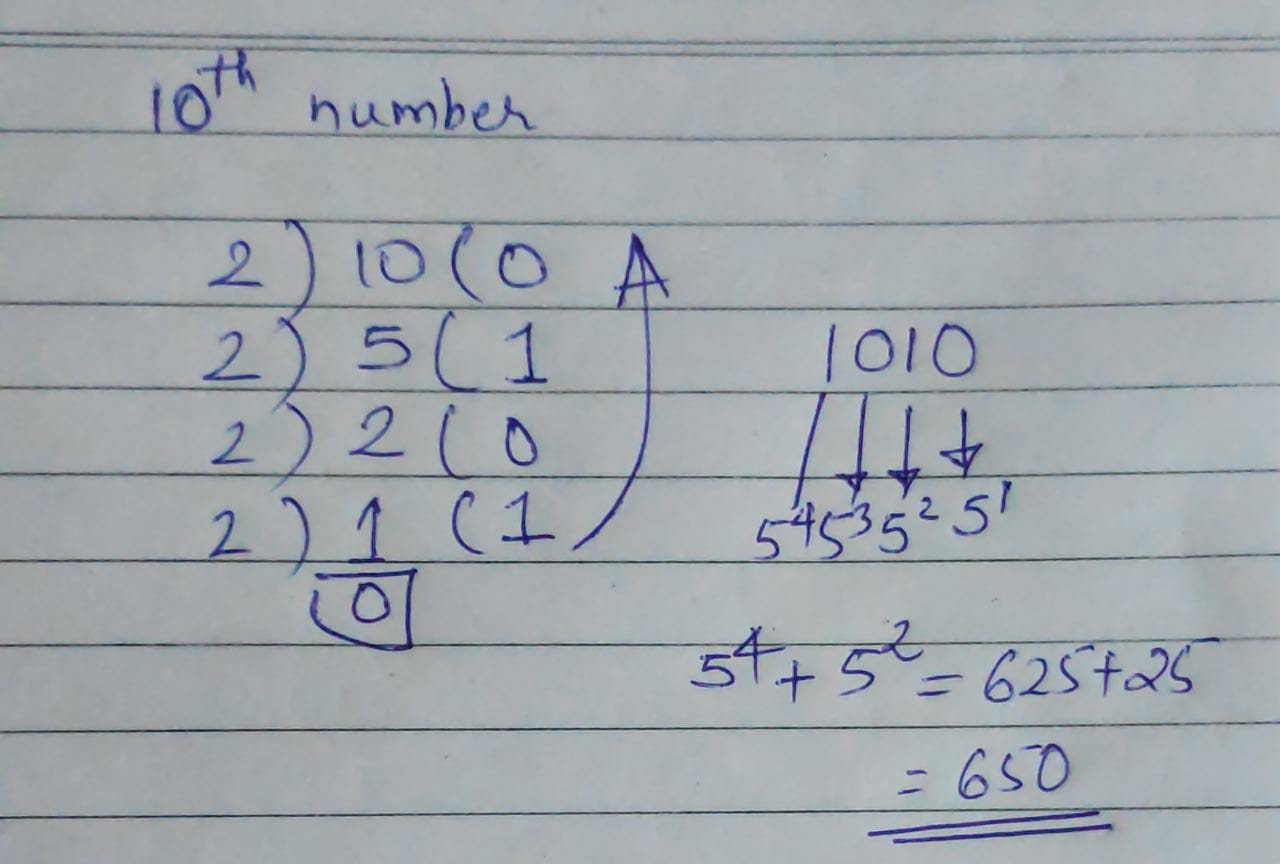 10th number
2) 10 ( 0
2) 5 ( 1
2) 2 ( 0
2) 1 ( 1
0
1010
5⁴ 5³ 5² 5¹
5⁴ + 5² = 625 + 25
= 650